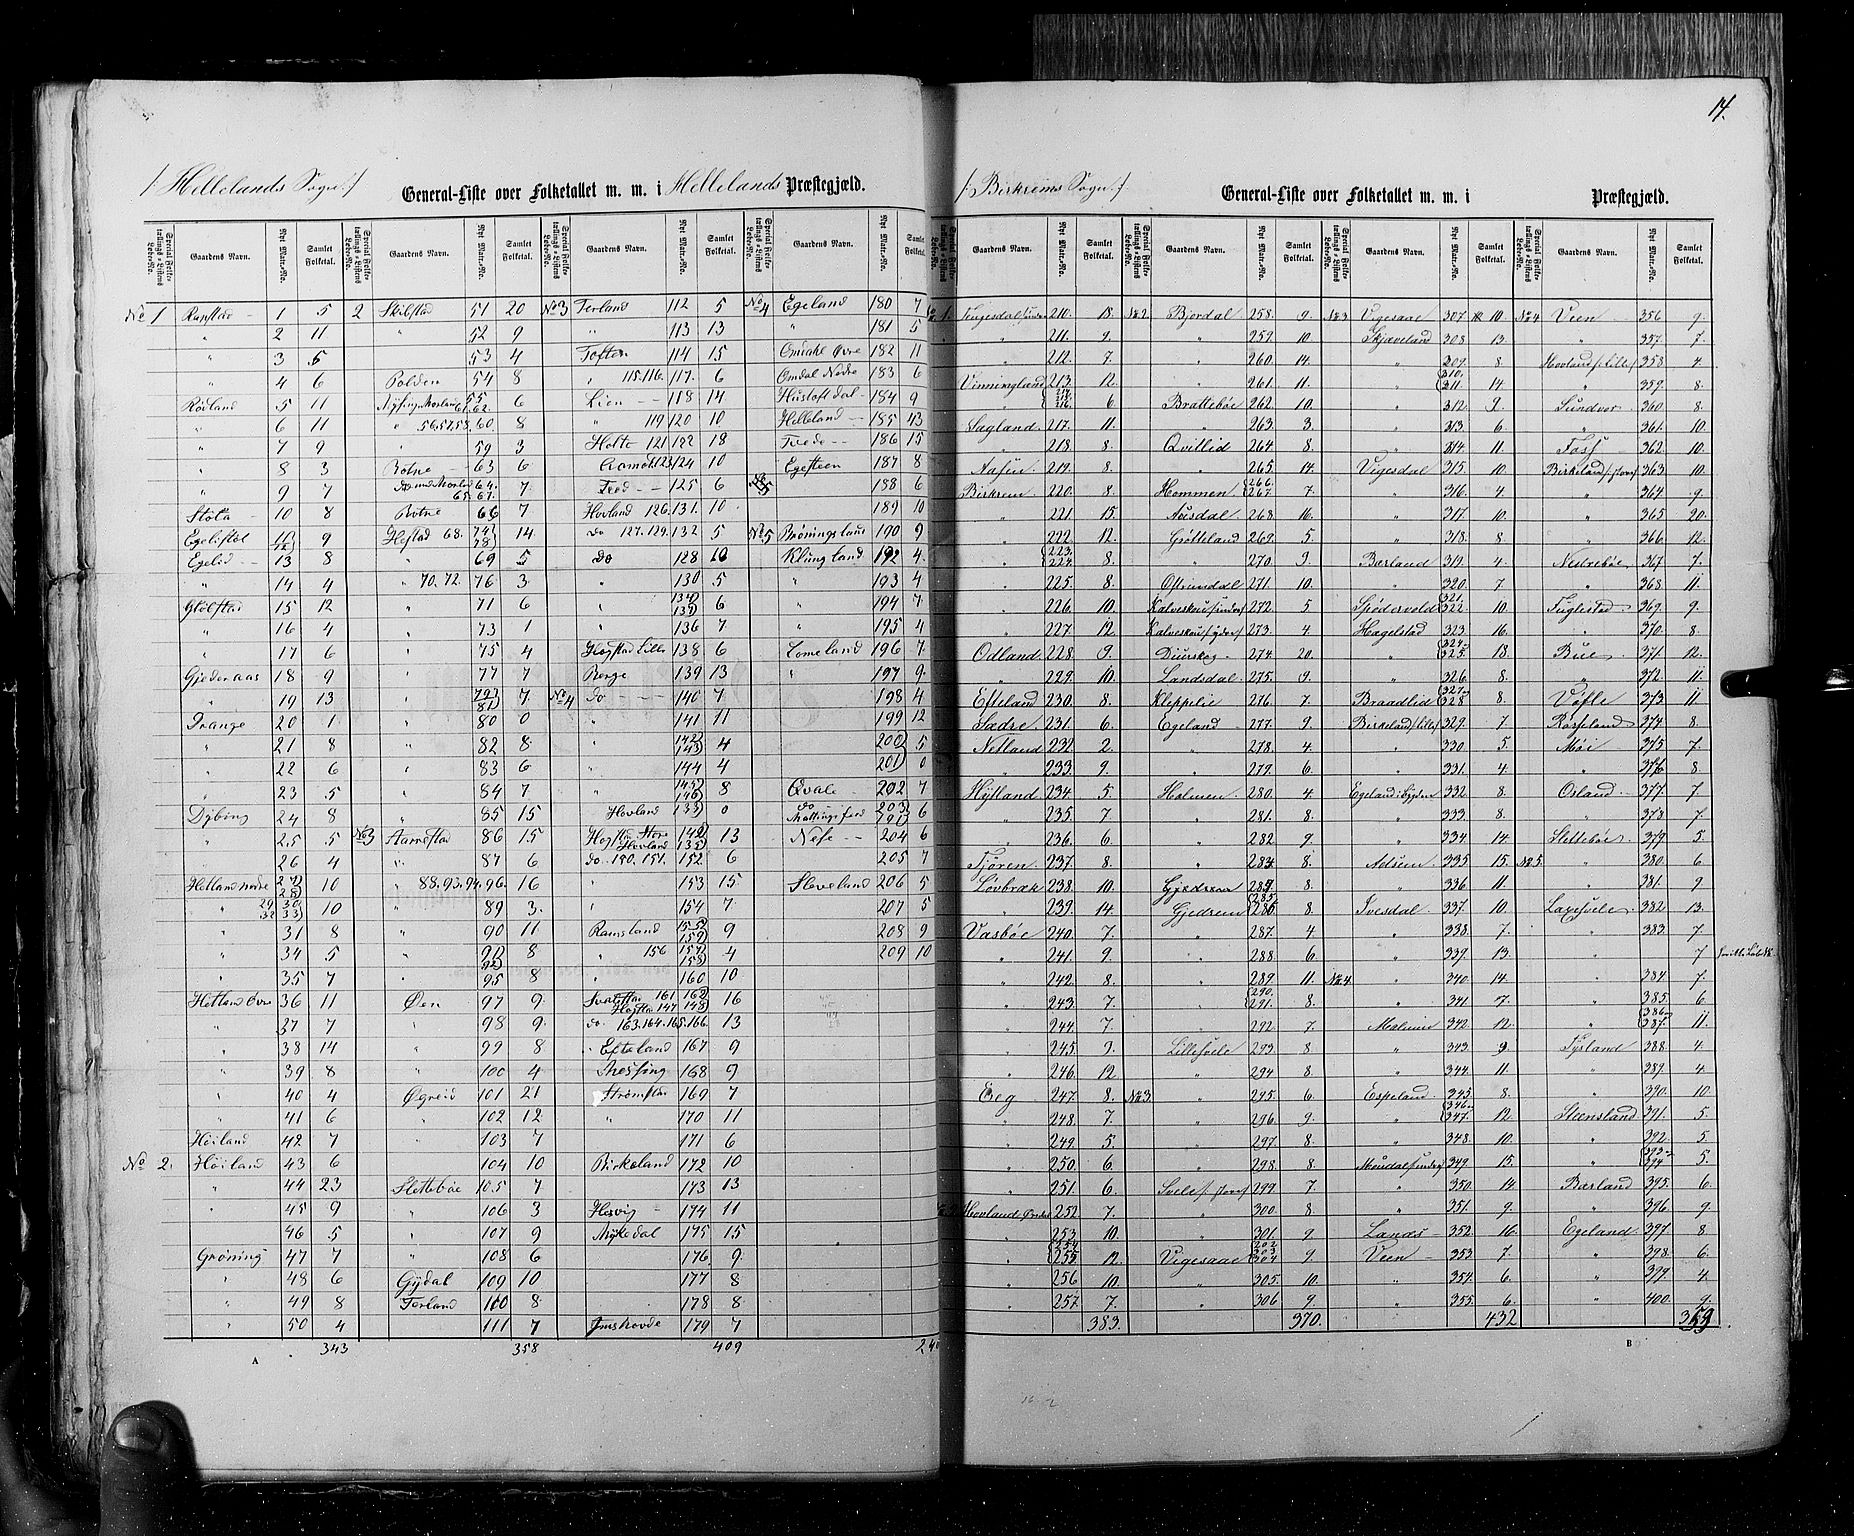 14.
/: Hellelands Sogn :/
General-Liste over Folketallet m. m. i Hellelands Præstegjæld.
Special Folketællings-Listens Løbe-No. | Gaardens Navn. | Nyt Matr.-No. | Samlet Folketal.
No 1 Rapstad - 1 5
" 2 11
" 3 5
" 4 6
Røvland 5 11
" 6 11
" 7 9
" 8 3
" 9 7
Støla - 10 8
Egelistøl 11 12 9
Egelid - 13 8
" 14 4
Gtølstad 15 12
" 16 4
" 17 6
Gjedenaas 18 9
" 19 13
Drange 20 1
" 21 8
" 22 6
" 23 5
Dybing 24 8
" 25 5
" 26 4
Hetland nedre 27 28 10
" 29 30 32 33 10
" 31 8
" 34 5
" 35 7
Hetland Øvre 36 11
" 37 7
" 38 14
" 39 8
" 40 4
" 41 6
Høiland 42 7
No 2. Høiland 43 6
" 44 23
" 45 9
" 46 5
Grøning 47 7
" 48 6
" 49 8
" 50 4
343
A
2 Skilstad 51 20
" 52 9
" 53 4
Bolden 54 8
55 61.62. 6
" 56.57.58.60 8
" 59 3
Botne - 63 6
64. 65.67. 7
Botne 66 7
Hestad 68. 74 78 14
" 69 5
" 70.72. 76 3
" 71 6
" 73 1
" 75 4
" 77 7
" 79 81 7
" 80 0
" 82 8
" 83 6
" 84 7
" 85 15
No 3 Aarrestad 86 15
" 87 6
" 88.93.94.96. 16
" 89 3
" 90 11
" 91 92 8
" 95 8
Øen 97 9
" 98 9
" 99 8
" 100 4
Øgreid 101 21
" 102 12
" 103 7
104 10
Slettebøe 105 7
" 106 3
" 107 9
" 108 6
Gydal 109 10
Terland 110 8
111 7
358
No 3 Terland 112 5
" 113 13
Toften 114 15
" 115.116. 117. 6
Lien - 118 14
" 119 120 10
Holte 121 122 18
Aamot 123 124 10
Tred - 125 6
Hovland 126. 131. 10
Do 127.129. 132 5
Do 128 10
" 130 5
" 134 137 6
" 136 7
Høgstad Lille 138 6
Berge 139 13
No 4 do - 140 7
" 141 11
" 142 143 4
" 144 4
" 145 146 8
Hovland 133 0
Høgstad Store 149 Hovland 135 13
do. 150. 151. 152 6
" 153 15
" 154 7
Ramsland 155 159 9
" 156 157 158 4
" 160 10
Svalestad 161 162 Høgstad 147 148 16
do. 163.164.165.166. 13
Efteland 167 9
168 9
Strømstad 169 7
" 170 11
171 6
Birkeland 172 10
173 13
Hervig - 174 11
Myke dal 175 15
176 9
177 8
178 8
Omshovde 179 7
409
No 4 Egeland 180 7
" 181 5
Omdahl Øvre 182 11
Omdal Nedre 183 6
Hustoft dal 184 9
Helleland - 185 43
Trede - 186 15
Egesteen 187 8
188 6
189 10
No 5 Brøningsland 190 9
Klungland 192 4
" 193 4
" 194 7
" 195 4
Lomeland 196 7
" 197 9
198 4
199 12
200 5
201 0
Qvale - 202 7
do 203 791 6
Nese - 204 6
205 7
Sleveland 206 5
207 5
208 9
209 10
/: Birkrems Sogn :/
General-Liste over Folketallet m. m. i Præstegjæld.
Special Folketællings-Listens Løbe-No. | Gaardens Navn. | Nyt Matr.-No. | Samlet Folketal.
Tengesdal 210. 18.
" 211. 9.
" 212. 7.
Vinningland 213. 12.
" 214. 216. 6.
Sagland 217. 11.
" 218. 8.
Aasen 219. 8.
Birkrem 220. 8.
" 221. 15.
" 222. 12.
" 223. 224. 8.
" 225. 8.
" 226. 10.
" 227. 12.
Odland 228. 9.
" 229. 10.
Efteland 230. 8.
Sædre 231. 6.
Netland 232. 2.
" 233. 9.
Hytland 234. 5.
" 235. 7.
" 236. 6.
Tjøren 237. 8.
Løvbræk 238. 10.
" 239. 14.
Vasbøe 240. 7.
" 241. 9.
" 242. 8.
" 243. 7.
" 244. 7.
" 245. 9.
" 246. 12.
Eeg 247. 8.
" 248. 7.
" 249. 5.
" 250. 6.
" 251. 6.
Hovland Øvre 252. 7.
" 253. 10.
" 254 255 12.
" 256 10.
" 257. 7.
383.
No 2. Bjordal 258. 9.
" 259. 10.
" 260. 14.
" 261. 11.
Brattebøe 262. 10.
" 263. 3.
Qvitlid 264. 8.
" 265. 14.
Hommen 266. 267. 7.
Aarsdal 268. 16.
Gjøtteland 269. 5.
" 270. 9.
Østrumdal 271. 10.
Kalveskou /indre/ 272. 5
Kalveskou /ydre/ 273. 4.
Diurskog 274. 20.
Landsdal 275. 9.
Kleppelie 276. 7.
Egeland 277. 9.
" 278. 4.
" 279. 6.
Holmen 280. 4.
" 281. 8.
" 282. 9.
" 283. 8.
Gjedrem 284. 8.
Gjedrem 285. 286. 8.
" 287. 4.
" 288. 6.
" 289. 11.
" 290. 291. 8.
" 292. 7.
Lillesvele 293. 8.
" 294. 8.
No 3. " 295. 6.
" 296. 9.
" 297. 8.
" 298. 8.
Svele /: store :/ 299. 7.
" 300. 8
" 301. 9.
Vigesaae 302. 303. 304. 9.
" 305. 10.
" 306 9.
370.
No 3 Vigesaae 307. 10.
Skjæveland 308 13.
" 309. 8.
" 310. 311. 14.
" 312. 2.
" 313 6.
" 314 11.
Vigesdal 315. 10.
" 316. 4.
" 317. 10.
" 318. 8.
Bærland 319. 4.
" 320. 7.
Spødervold 321. 322. 10.
Hagelstad 323. 16.
" 324. 325. 18.
" 326. 8.
Braadlid 327. 328 8.
Birkeland /: Lille :/ 329. 7
" 330. 5.
" 331. 4.
Egeland i Bygden 332. 8.
" 333. 8.
" 334. 14.
Adsem 335. 15.
" 336. 11.
Ivesdal 337. 10.
" 338. 7.
" 339. 13.
No 4. " 340. 14.
" 341. 7.
Malmin 342. 12.
" 343. 9.
" 344. 11.
Espeland 345. 8.
" 346. 347. 12.
" 348. 10.
349 15.
" 350. 14.
" 351. 9.
Landes - 352. 16.
Veen - 353. 7.
" 354. 6.
" 355. 6.
432
No 4 Veen 356 9.
" 357. 7.
Hovland /: Lille :/ 358 4.
" 359. 8.
Sundvor 360. 8.
" 361. 10.
Foss 362. 10.
Birkeland /: store :/ 363. 10.
" 364. 9.
" 365. 20.
" 366. 12.
Nedrebøe 367. 7.
" 368. 11.
Fuglestad 369. 9.
" 370. 8.
Bue 371. 12.
" 372. 11.
373 11.
374 8.
Møi 375 7.
" 376 8.
Osland 377. 7
" 378. 7.
Slettebøe 379. 5.
No 5. " 380. 6
" 381. 9
Laxesvele 382. 13.
" 383. 7.
" 7
" 384. 7.
" 385. 6
" 386. 387. 11.
Tysland 388. 4.
" 389. 4.
" 390. 10.
Steensland 391. 5.
" 392. 5.
" 393. 394 5.
Bærland 395. 6.
" 396. 9.
Egeland 397 8
" 398. 6
" 399. 4.
" 400. 9.
B